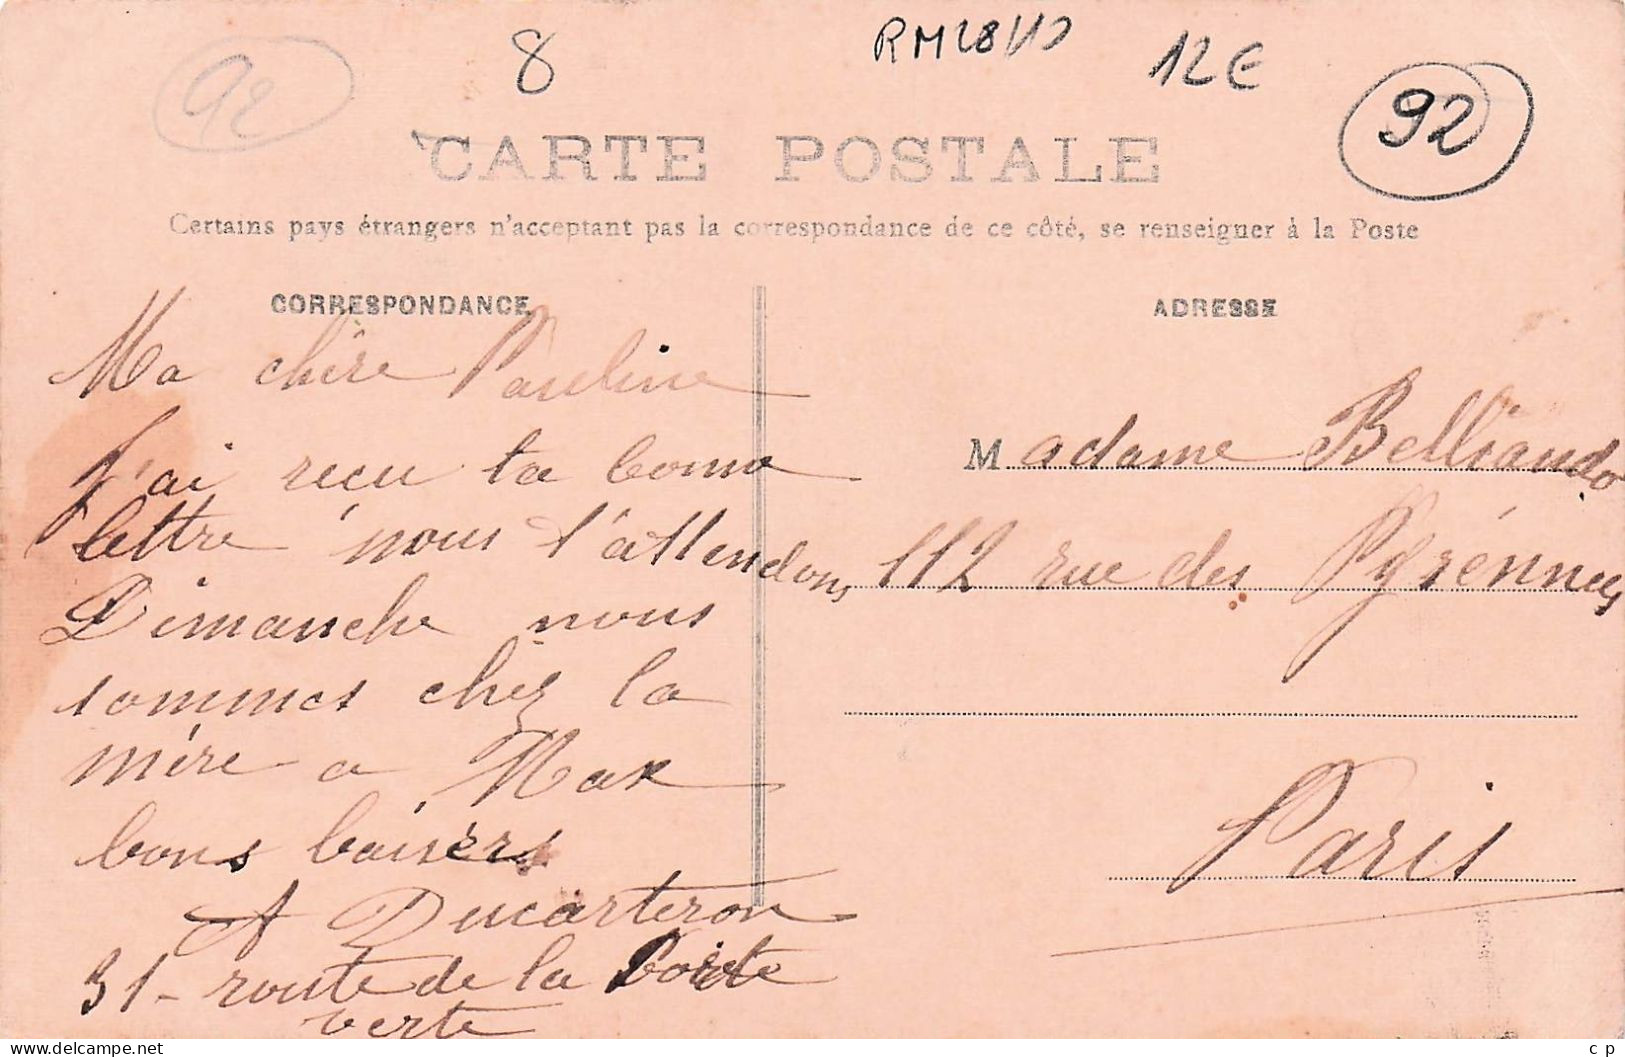 92
8
RM28/10
12€
92
CARTE POSTALE
Certains pays étrangers n'acceptant pas la correspondance de ce côté, se renseigner à la Poste
CORRESPONDANCE
Ma chère Pauline
J'ai reçu ta bonne
lettre nous t'attendons
Dimanche nous
sommes chez la
mère a Max
bons baisers
A Ducarteron
31 - route de la
verte
ADRESSE
Madame Belliando
112 rue des Pyrénnées
Paris
c p